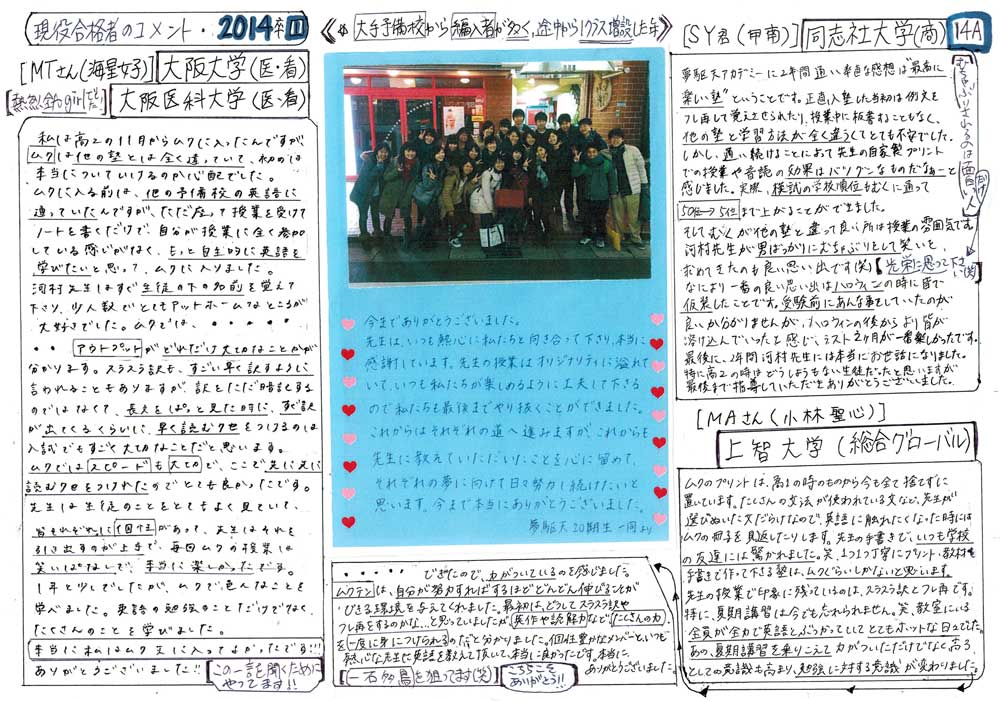 現役合格者のコメント・2014卒 II
《※大手予備校から編入者が多く,途中から1クラス増設した年》
14A
[MTさん(海星女子)]大阪大学(医・看)
大阪医科大学(医・看)
私は高2の11月からムクに入ったんですが、
ムクは他の塾とは全く違っていて、初めは
本当についていけるのか心配でした。
ムクに入る前は、他の予備校の英語に
通っていたんですが、ただ座って授業を受けて
ノートを書くだけで、自分が授業に全く参加
している感じがなく、もっと自主的に英語を
学びたいと思って、ムクに入りました。
河村先生はすぐ生徒の下の名前を覚えて
下さり、少人数でとてもアットホームなところが
大好きでした。ムクでは、・・・・・
・・アウトプットがどれだけ大切なことかが
分かります。スラスラ訳も、すごい早く訳すように
言われることもありますが、訳をただ暗記する
のではなくて、長文をぱっと見た時に、すぐ訳
が出てくるくらいに、早く読むクセをつけるのは
入試でもすごく大切なことだと思います。
ムクではスピードも大切で、ここで先に先に
読むクセをつけれたのでとても良かったです。
先生は生徒のことをとてもよく見ていて、
皆それぞれに個性があって、先生はそれを
引き出すのが上手で、毎回ムクの授業は
笑いっぱなしで、本当に楽しかったです。
1年と少しでしたが、ムクで色んなことを
学べました。英語の勉強のことだけでなく、
たくさんのことを学びました。
本当に私はムク天に入ってよかったです!!!
ありがとうございました!!
この一言を聞くために
やってます!!
今までありがとうございました。
先生は、いつも熱心に私たちと向き合って下さり、本当に
感謝しています。先生の授業はオリジナリティに溢れて
いて、いつも私たちが楽しめるように工夫して下さる
ので私たちも最後までやり抜くことができました。
これからはそれぞれの道へ進みますが、これからも
先生に教えていただいたことを心に留めて、
それぞれの夢に向けて日々努力し続けたいと
思います。今まで本当にありがとうございました。
夢駆天20期生一同より
・・・・・できたので、力がついているのを感じました。
ムクテンは、自分が努力すればするほどどんどん伸びることが
できる環境を与えてくれました。最初は、どうしてスラスラ訳や
フレ再をするのかな、と思っていましたが、英作や読解力など「たくさんの力」
を一度に身につけられるのだと分かりました。個性豊かなメンバーといつも
熱心な先生に英語を教えて頂いて、本当に良かったです。本当に
ありがとうございました。
[一石多鳥を狙ってます(笑)]
こちらこそ
ありがとう!!
[SY君(甲南)]同志社大学(商)
夢駆天アカデミーに2年間通い率直な感想は"最高に
楽しい塾"ということです。正直入塾した当初は例文を
フレ再して覚えさせられたり、授業中に板書することもなく、
他の塾と学習方法が全く違うくてとても不安でした。
しかし、通い続けることによって先生の自家製プリント
での授業や音読の効果はバツグンなものだなぁーと
感じました。実際、模試の学校順位もむくに通って
50位→5位まで上がることができました。
そしてむくが他の塾と違って良い所は授業の雰囲気です。
河村先生が男ばっかりにむちゃぶりをして笑いを
求めてきたのも良い思い出です(笑)
[光栄に思って下さい(笑)]
なにより一番の良い思い出はハロウィンの時に皆で
仮装したことです。受験前にあんな事をしていたのが
良いか分かりませんが、ハロウィンの後からより皆が
溶け込んでいったと感じ、ラスト2ヶ月が一番楽しかったです。
最後に、2年間河村先生には本当にお世話になりました。
特に高2の時はどうしようもない生徒だったと思いますが
最後まで指導していただきありがとうございました。
むちゃぶりされるのは面白い人だけ
[MAさん(小林聖心)]
上智大学(総合グローバル)
ムクのプリントは、高1の時のものから今も全て捨てずに
置いています。たくさんの文法が使われている文など、先生が
選びぬいた文だらけなので、英語に触れたくなった時には
ムクの冊子を見返したりします。先生の手書きで、いつも学校
の友達には驚かれました。笑、1つ1つ丁寧にプリント・教材を
手書きで作って下さる塾は、ムクぐらいしかないと思います。
先生の授業で印象に残っているのは、スラスラ訳とフレ再です。
特に、夏期講習は今でも忘れられません。笑、教室にいる
全員が全力で英語とぶつかっていてとてもホットな日々でした。
あの、夏期講習を乗りこえて力がついただけでなく高3
としての意識も高まり、勉強に対する意識が変わりました。